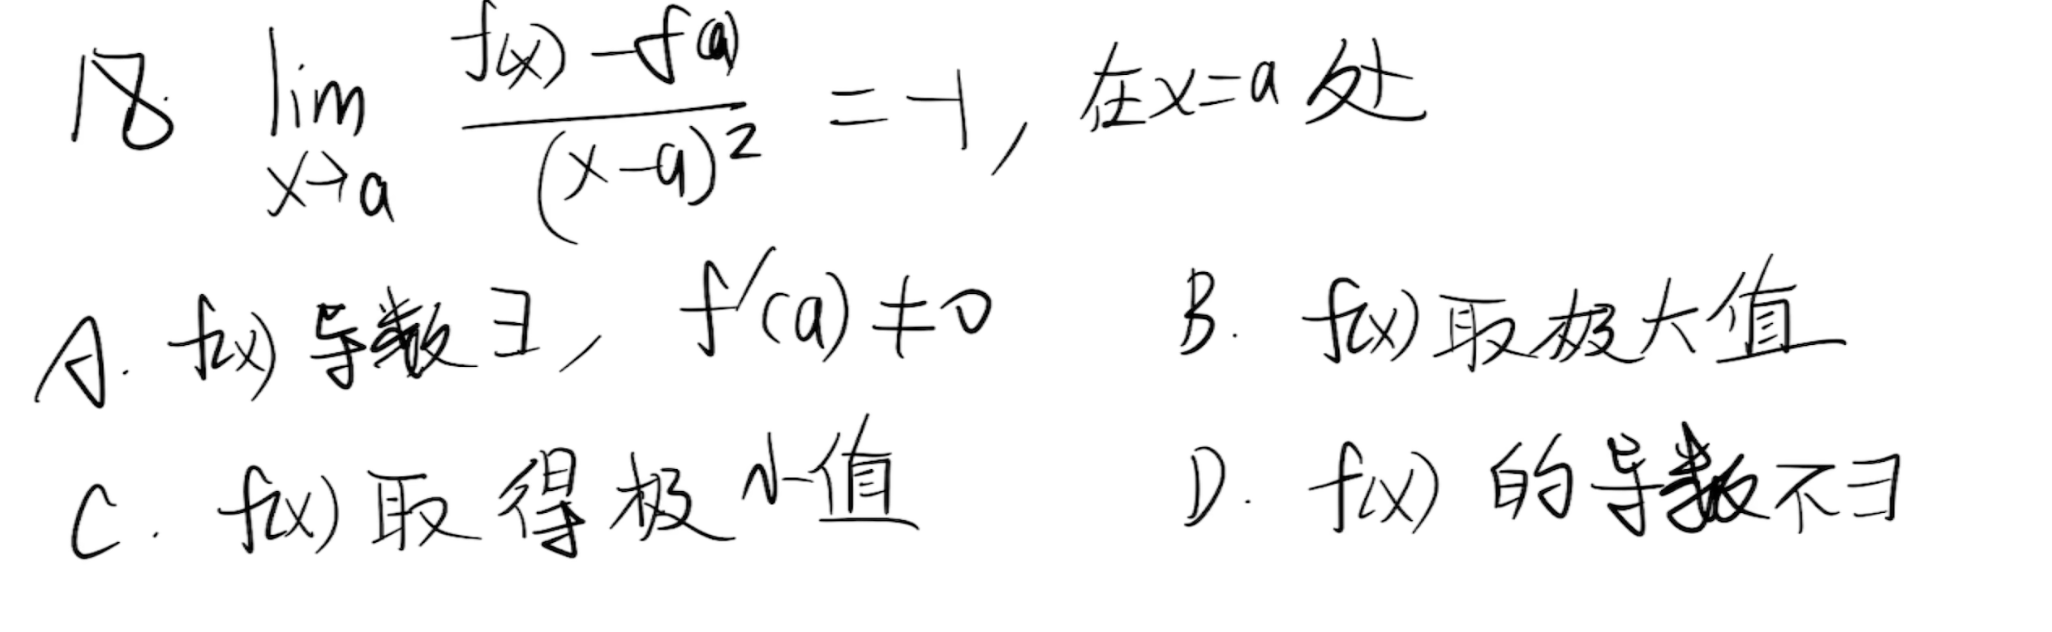 18. lim x→a (f(x)-f(a))/(x-a)² = -1, 在x=a处
A. f(x)导数∃, f'(a)≠0 B. f(x)取极大值
C. f(x)取得极小值 D. f(x)的导数不∃